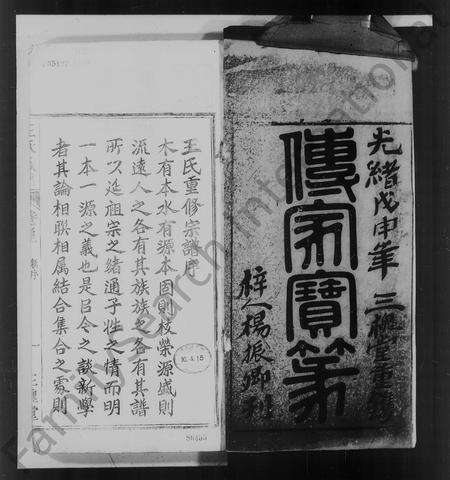 光緒戊申年 三槐堂
傳家寶第
梓人楊振卿刊
王氏重修宗譜序
木有本水有源本固則枝榮源盛則
流遠人之各有其族族之各有其譜
所以延祖宗之緒通子姓之情而明
一本一源之義也是自今之談新學
者其論相聯相属結合集合之處則
三槐堂
FamilySearch International